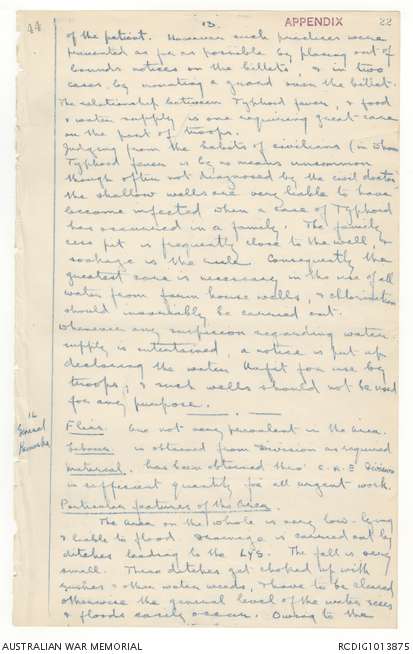 44
13.
APPENDIX
22
of the patient. However such practices were
prevented as far as possible by placing out of
bounds notices on the billets, & in two
cases by mounting a guard over the billet.
The relationship between Typhoid fever, & food
& water supply is one requiring great care
on the part of troops.
Judging from the habits of civilians (in whom
Typhoid fever is by no means uncommon
though often not diagnosed by the civil doctor)
the shallow wells are very liable to have
become infected when a case of Typhoid
has occurred in a family. The family
cess pit is frequently close to the well, &
soakage is the rule. Consequently the
greatest care is necessary in the use of all
water from farm house wells, & chlorination
should invariably be carried out.
Whenever any suspicion regarding water
supply is entertained, a notice is put up
declaring the water unfit for use by
troops; & such wells should not be used
for any purpose.
16
General
Remarks
Flies. are not very prevalent in the area.
Labour is obtained from Division as required
Material, has been obtained thro' C.R.E Division
in sufficient quantity for all urgent work.
Particular features of the Area.
The area on the whole is very low-lying
& liable to flood. Drainage is carried out by
ditches leading to the LYS. The fall is very
small. These ditches get choked up with
rushes & other water weeds, & have to be cleared
otherwise the general level of the water rises
& floods easily occur. Owing to the
AUSTRALIAN WAR MEMORIAL
RCDIG1013875